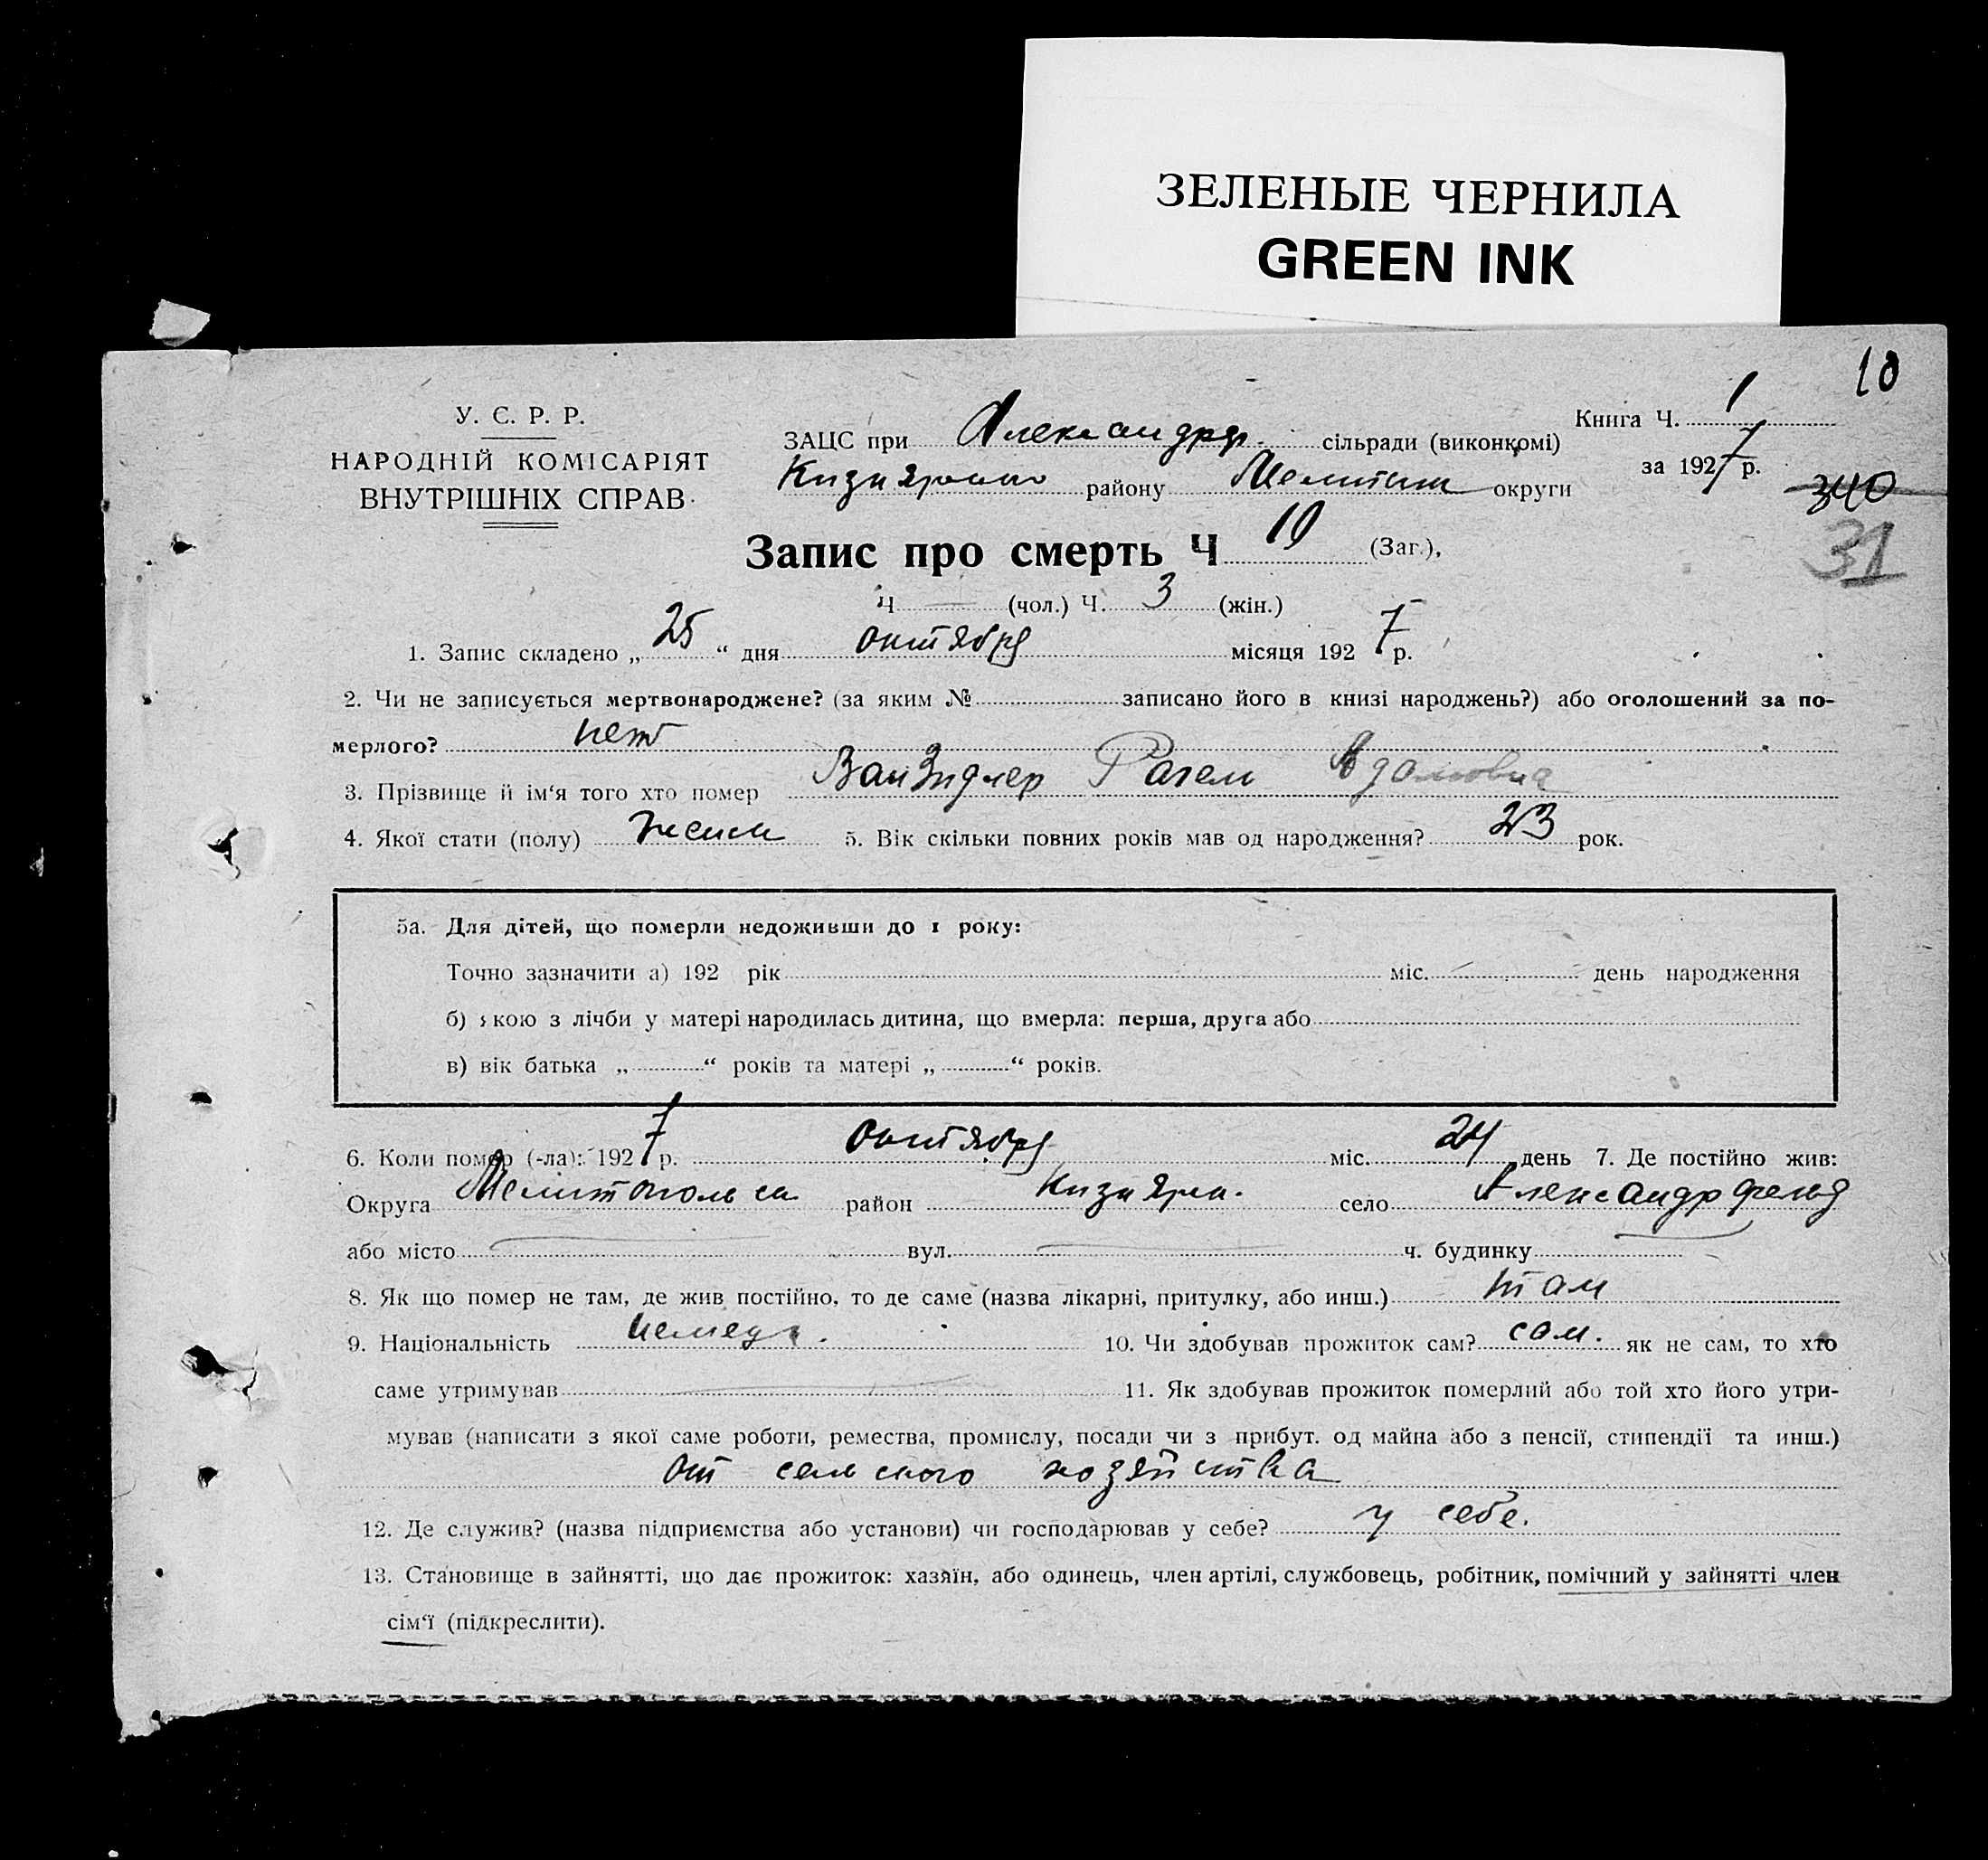 ЗЕЛЕНЫЕ ЧЕРНИЛА
GREEN INK
10
У. Є. Р. Р.
НАРОДНІЙ КОМІСАРІЯТ
ВНУТРІШНІХ СПРАВ.
ЗАЦС при Александрф. сільради (виконкомі)
Книга Ч. 1
району Мелитоп округи
за 1927 р.
340
31
Запис про смерть Ч 10 (Заг.),
Ч — (чол.) Ч. 3 (жін.)
1. Запис складено „ 25 “ дня октября місяця 1927 р.
2. Чи не записується мертвонароджене? (за яким № записано його в книзі народжень?) або оголошений за по-
мерлого? нет
3. Прізвище й ім‘я того хто помер Адамовна
4. Якої стати (полу) женск 5. Вік скільки повних років мав од народження? 23 рок.
5а. Для дітей, що померли недоживши до 1 року:
Точно зазначити а) 192 рік міс. день народження
б) якою з лічби у матері народилась дитина, що вмерла: перша, друга або
в) вік батька „ “ років та матері „ “ років.
6. Коли помер (-ла): 1927 р. октября міс. 24 день 7. Де постійно жив:
Округа Мелитопольск район Кизияр. село Александрфельд
або місто — вул. — ч. будинку
8. Як що помер не там, де жив постійно, то де саме (назва лікарні, притулку, або инш.) там
9. Національність немецк. 10. Чи здобував прожиток сам? сам. як не сам, то хто
саме утримував — 11. Як здобував прожиток померлий або той хто його утри-
мував (написати з якої саме роботи, ремества, промислу, посади чи з прибут. од майна або з пенсії, стипендії та инш.)
от сельского хозяйства
12. Де служив? (назва підприємства або установи) чи господарював у себе? у себе.
13. Становище в зайнятті, що дає прожиток: хазяїн, або одинець, член артілі, службовець, робітник, помічний у зайнятті член
сім‘ї (підкреслити).